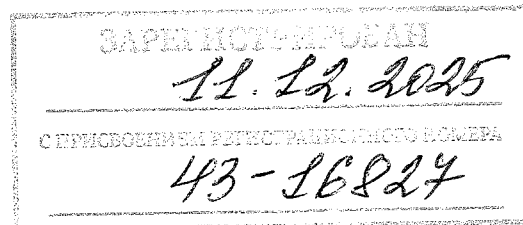 ЗАРЕГИСТРИРОВАН
11.12.2025
С ПРИСВОЕНИЕМ РЕГИСТРАЦИОННОГО НОМЕРА
43-16827